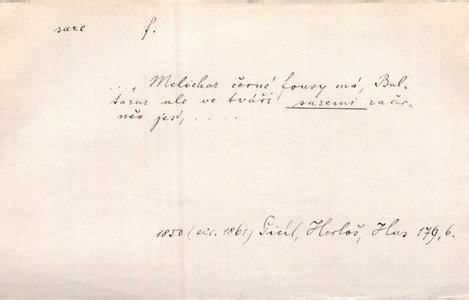 saze f.
... „Melichar černé fousy má, Bal-
tazar ale ve tváři sazemi začer-
něn jest, ....
1850 (vyd. 1861) Pichl, Herloš, Hus 179, 6.